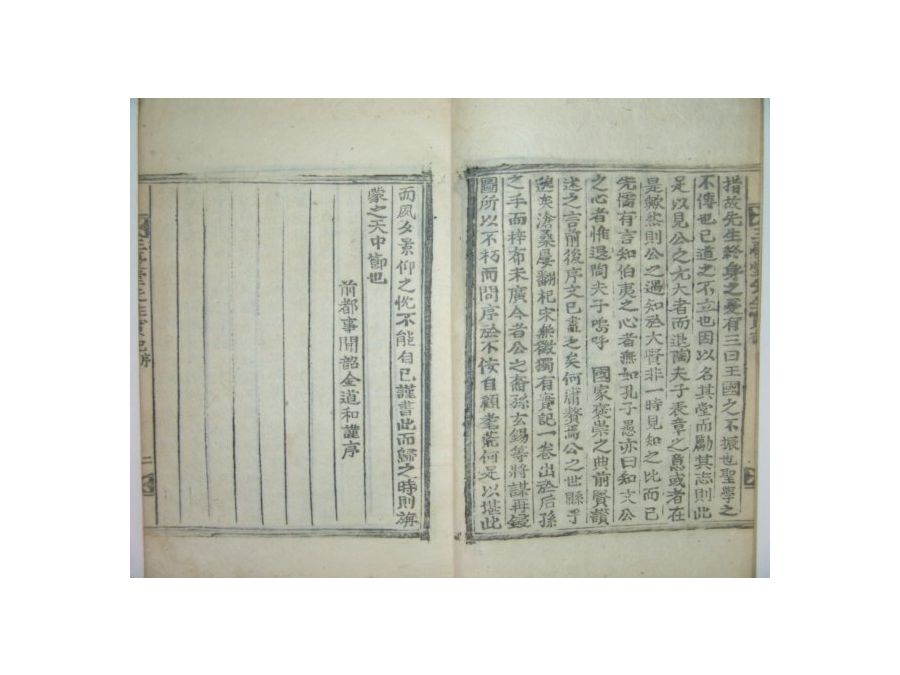 措故先生終身之憂有三曰王國之不振也聖學之
不傳也已道之不立也因以名其堂而勵其志則此
足以見公之尤大者而退陶夫子表章之意或者在
是歟然則公之遇知於大賢非一時見知之比而已
先儒有言知伯夷之心者無如孔子愚亦曰知文公
之心者惟退陶夫子嗚呼 國家褒崇之典前賢讚
述之言前後序文已盡之矣何庸贅焉公之世縣乎
灰滄桑屢翻杞宋無徵獨有實記一卷出於后孫
之手而梓布未廣今者公之裔孫玄錫等將謀再鋟
圖所以不朽而問序於不侫自顧耄荒何足以堪此
而夙夕景仰之忱不能自已謹書此而歸之時則旃
蒙之天中節也
前都事聞韶金道和謹序
二